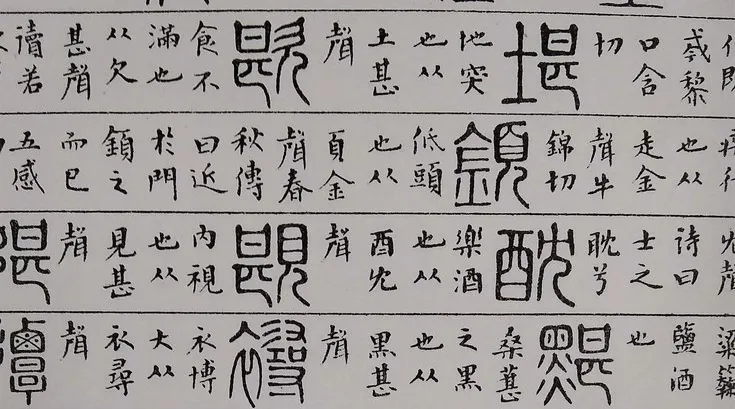 黎口含切 堪 地突也从土甚聲 歁 食不滿也从欠甚聲讀若
也从走金聲牛錦切 顉 低頭也从頁金聲春秋傳曰迎於門顉之而已五感
冘聲詩曰士之耽兮 酖 樂酒也从酉冘聲 內視也从見甚聲
鹽酒也 黮 桑葚之黑也从黑甚聲 襑 衣博大从衣尋聲